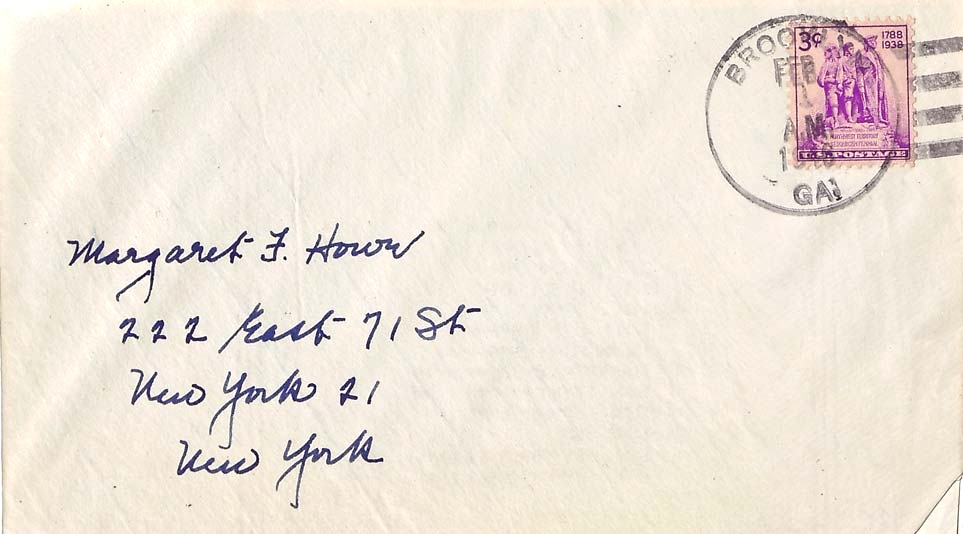 3¢ 1788
1938
FEB
1
A.M
GA
NORTHWEST TERRITORY
SESQUICENTENNIAL
U.S. POSTAGE
Margaret F. Howe
222 East 71 St
New York 21
New York